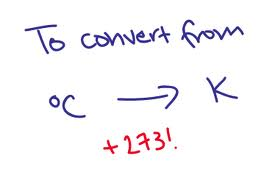 To convert from
°C → K
+273!